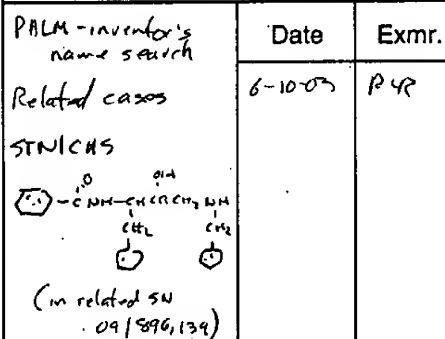 Date Exmr.
PALM - inventor's
name search
Related cases 6-10-03
STN/CAS
O OH
-C NH-CH CH CH2 NH
CH2 CH2
(in related SN
09/896,139)